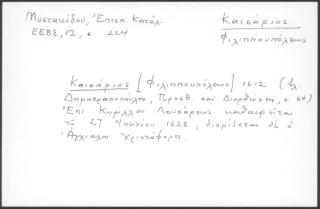 Μυστακίδου, Ἐπισκ. Κατάλ.
ΕΕΒΣ, 12, σ 224
Καισάριος
Φιλιππουπόλεως
Καισάριος [Φιλιππουπόλεως] 1612 (βλ.
Δημητρακοπούλου, Προσθ. καὶ Διορθώσεις, σ 64)
Ἐπὶ Κυρίλλου Λουκάρεως καθαιρεῖται
τῇ 27 Ἰουνίου 1628, διορίζεται δὲ ὁ
Ἀγχιάλου Χριστόφορος.